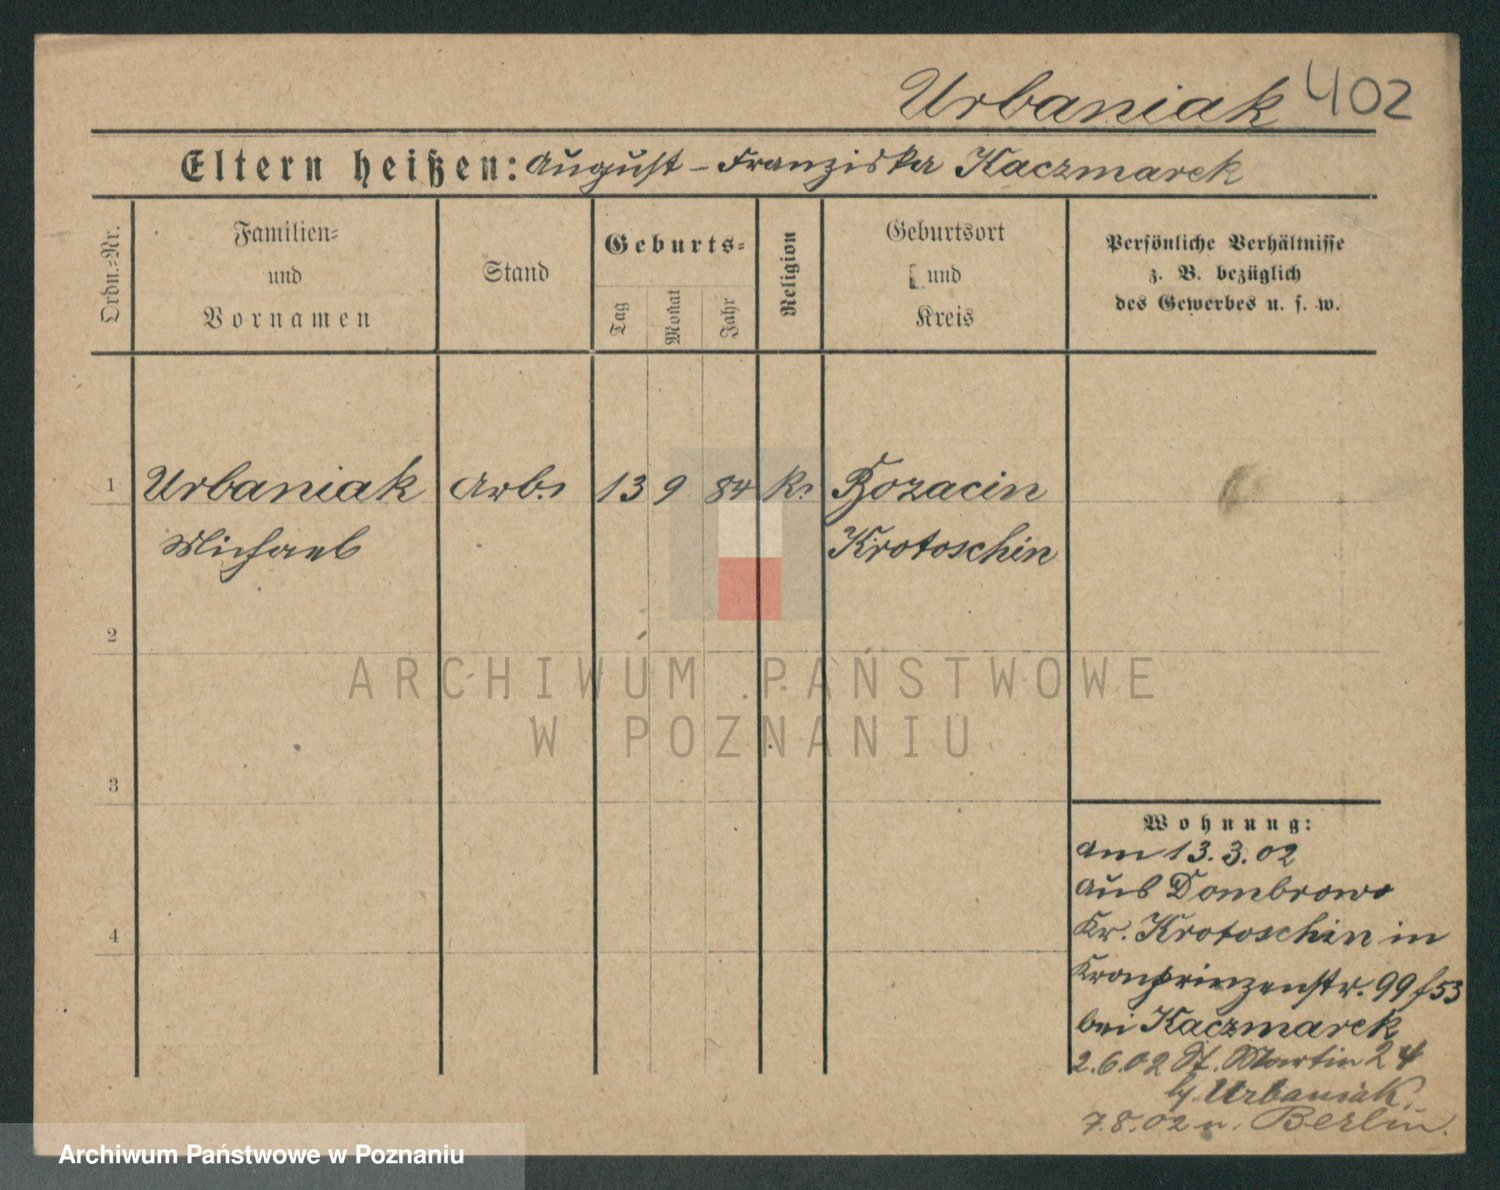 Urbaniak 402
Eltern heißen: August – Franziska Kaczmarek
Ordn.=Nr.
Familien=
und
Vornamen
Stand
Geburts=
Tag
Monat
Jahr
Religion
Geburtsort
und
Kreis
Persönliche Verhältnisse
z. B. bezüglich
des Gewerbes u. s. w.
1 Urbaniak Arb. 13 9 84 K. Bozacin
Michael Krotoschin
2
3
4
Wohnung:
am 13.3.02
aus Dombrowo
Kr. Krotoschin in
Kronprinzenstr. 99
bei Kaczmarek
2.6.02 St. Martin 24
b/ Urbaniak.
7.8.02 n. Berlin.
ARCHIWUM PAŃSTWOWE
W POZNANIU
Archiwum Państwowe w Poznaniu